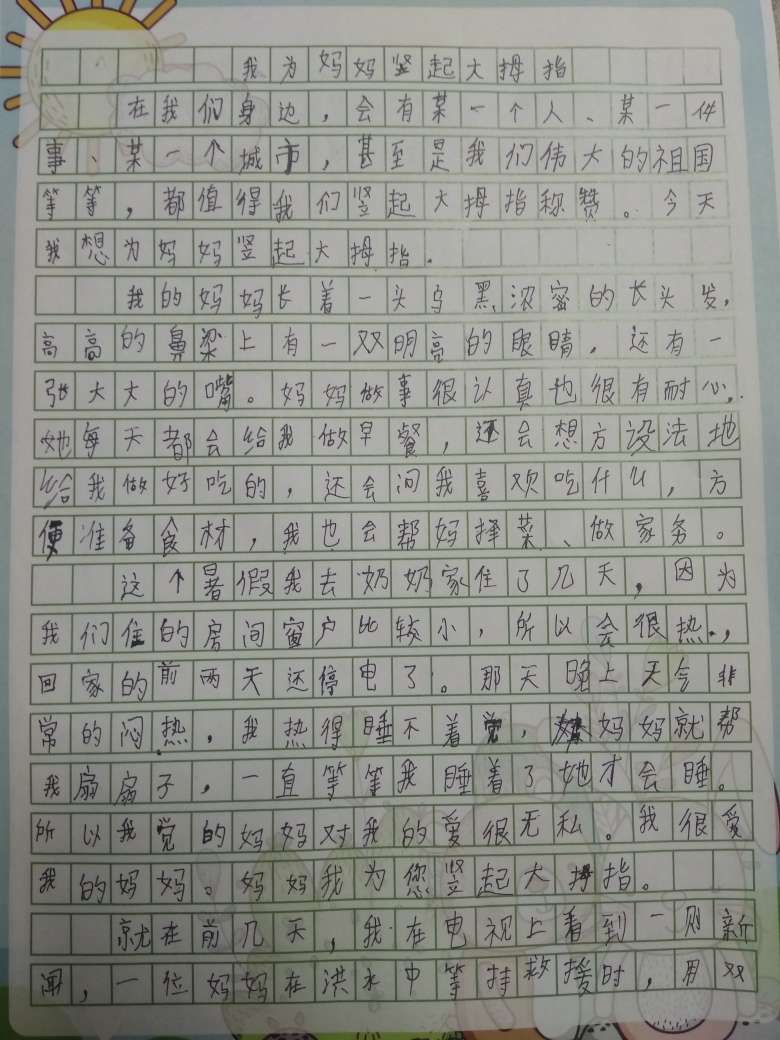 我为妈妈竖起大拇指
在我们身边，会有某一个人、某一件
事、某一个城市，甚至是我们伟大的祖国
等等，都值得我们竖起大拇指称赞。今天
我想为妈妈竖起大拇指.
我的妈妈长着一头乌黑浓密的长头发，
高高的鼻梁上有一双明亮的眼睛，还有一
张大大的嘴。妈妈做事很认真也很有耐心，
她每天都会给我做早餐，还会想方设法地
给我做好吃的，还会问我喜欢吃什么，方
便准备食材，我也会帮妈择菜、做家务。
这个暑假我去奶奶家住了几天，因为
我们住的房间窗户比较小，所以会很热，
回家的前两天还停电了。那天晚上天气非
常的闷热，我热得睡不着觉，妈妈就帮
我扇扇子，一直等等我睡着了她才会睡。
所以我觉的妈妈对我的爱很无私。我很爱
我的妈妈。妈妈我为您竖起大拇指。
就在前几天，我在电视上看到一则新
闻，一位妈妈在洪水中等持救援时，用双